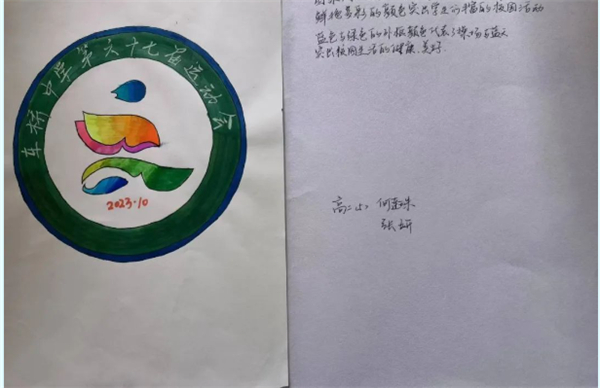 车桥中学第六十七届运动会
2023.10
鲜艳多彩的颜色突出学生们丰富的校园活动
蓝色与绿色的外报颜色代表了操场与蓝天
突出校园生活的健康、美好.
高二(5) 何
张妍